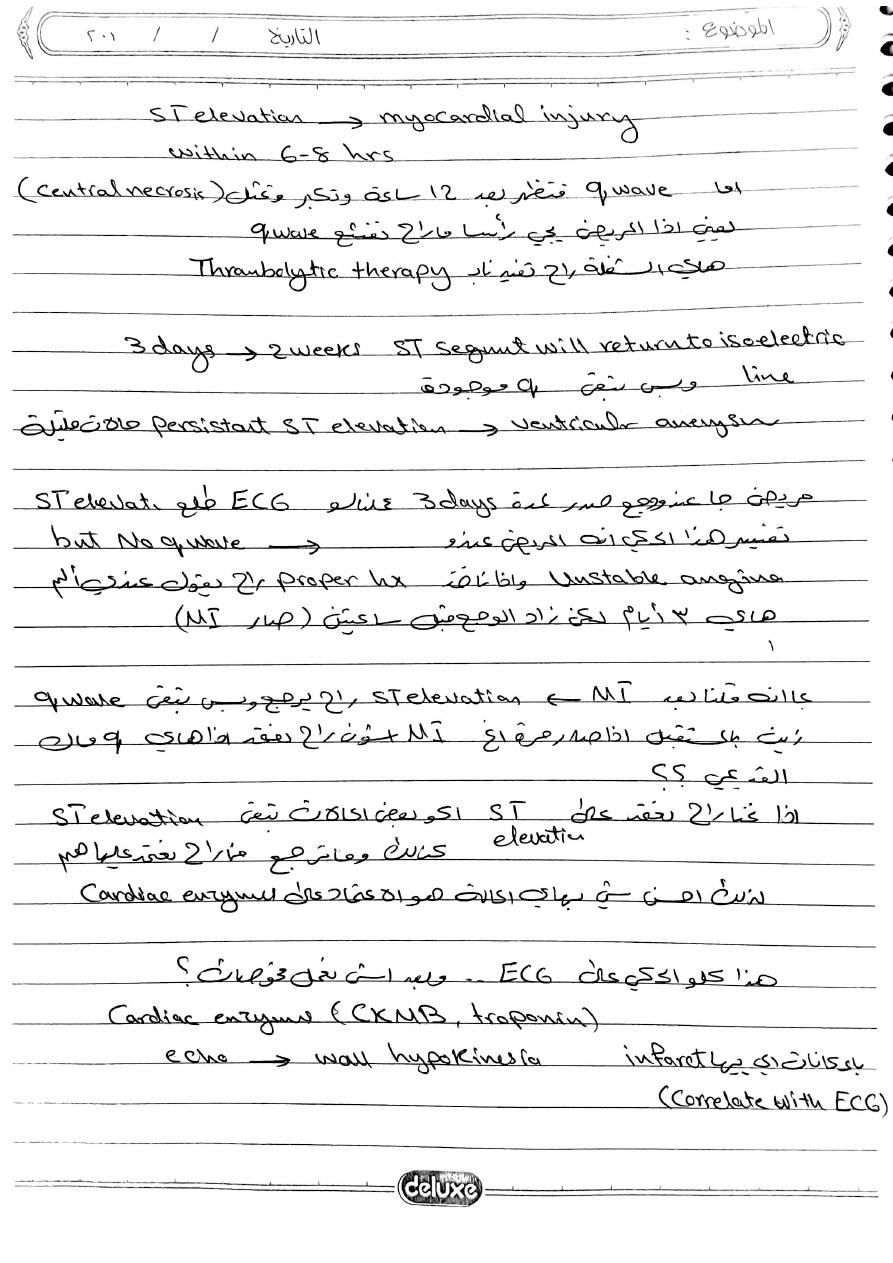 الموضوع : التاريخ / / ٢٠١
ST elevation → myocardial injury
within 6-8 hrs
اما q wave فتظهر بعد 12 ساعة وتكبر وتمثل (central necrosis)
يعني اذا المريض يجي رأسا ماراح q wave
هاي الشغلة راح تفيدنا ب Thrombolytic therapy
3 days → 2 weeks ST segment will return to isoelectric
line وبس تبقى q موجودة
حالات قليلة persistant ST elevation → ventricular aneurysm
مريض جا عندو وجع صدر لمدة 3 days عملنالو ECG طلع ST elevati.
but No q wave → تفسير هذا الحكي انه المريض عندو
Unstable angina واذا ناخذ proper hx راح يقول عندي ألم
هاي ٣ أيام لكن زاد الوجع قبل ساعتين (صار MI)
بما انه قلنا بعد MI ← ST elevation راح يرجع وبس تبقى q wave
زين بالمستقبل اذا صار مرة اخ MI شون راح نعرف اذا هاي q مال
القديمي ؟؟
اذا عنا راح نعتمد على ST elevatin اكو بعض الحالات تبقى ST elevation
كذلك وما ترجع فما راح نعتمد عليها هم
لذلك احسن شي بهاي الحالة هو الاعتماد على Cardiac enzymes
هذا كلو الحكي على ECG .. وبعد اش نعمل فحوصات ؟
Cardiac enzymes (CKMB, troponin)
echo → wall hypokinesia بالمكانات الي بيها infarct
(Correlate with ECG)
deluxe